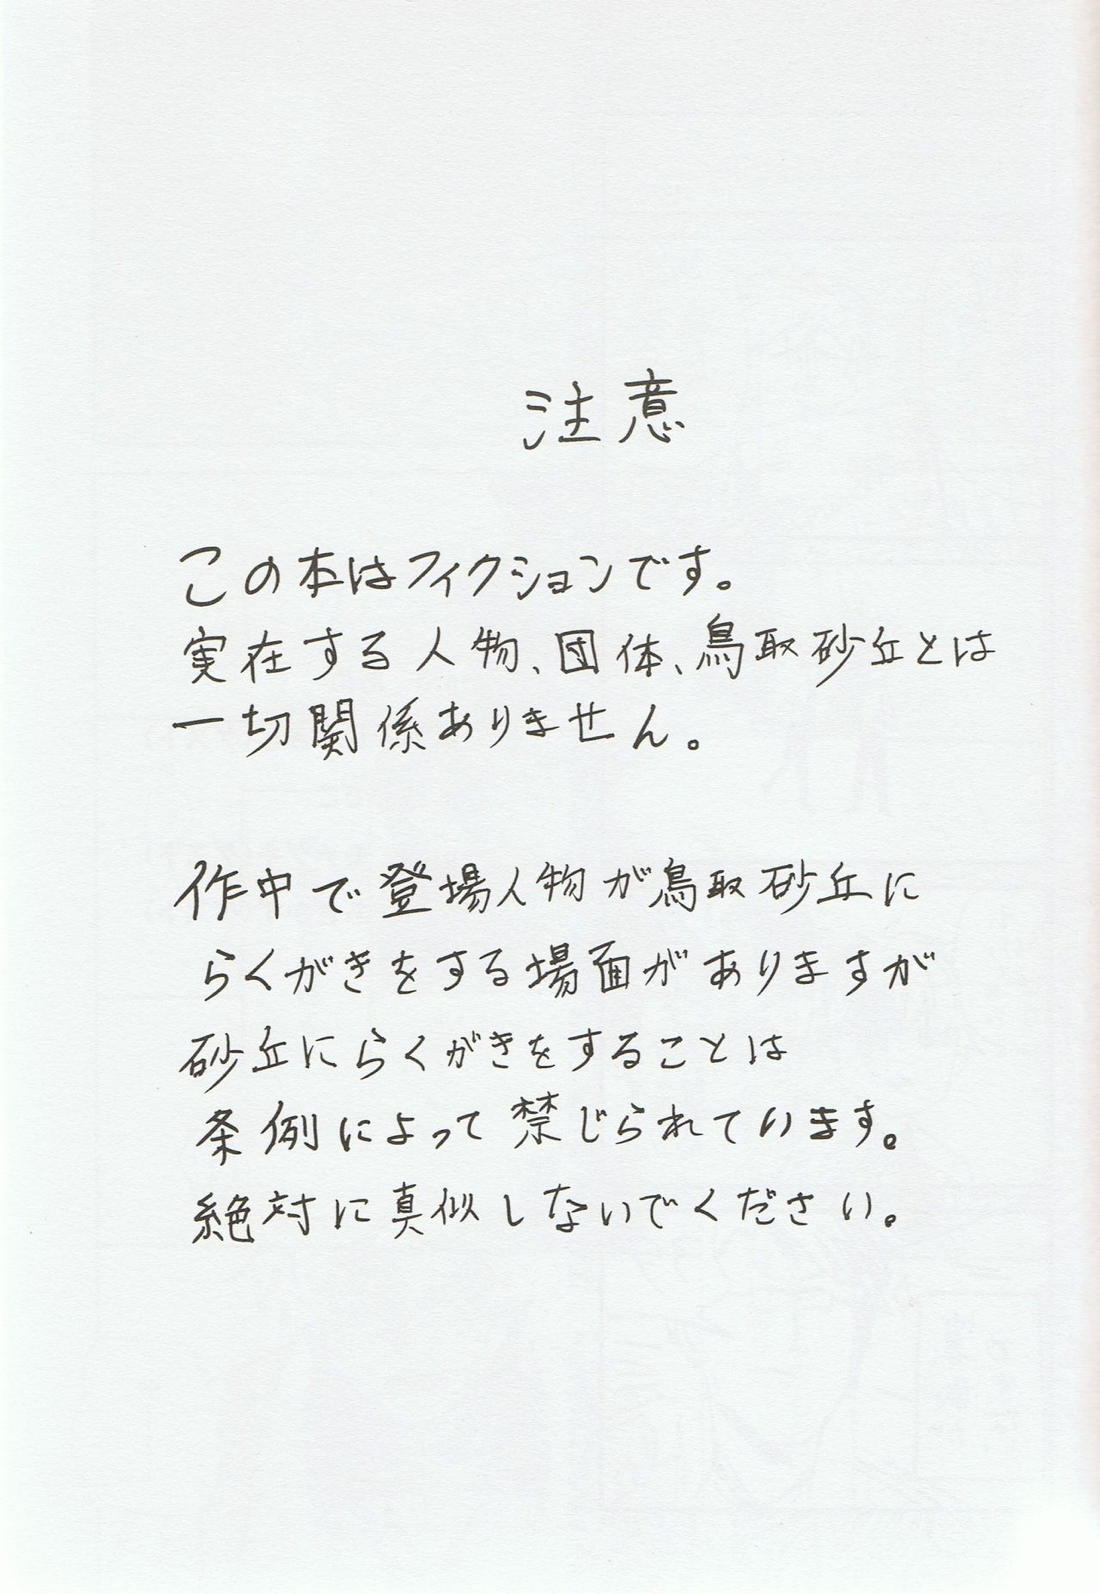 注意
この本はフィクションです。
実在する人物、団体、鳥取砂丘とは
一切関係ありません。
作中で登場人物が鳥取砂丘に
らくがきをする場面がありますが
砂丘にらくがきをすることは
条例によって禁じられています。
絶対に真似しないでください。